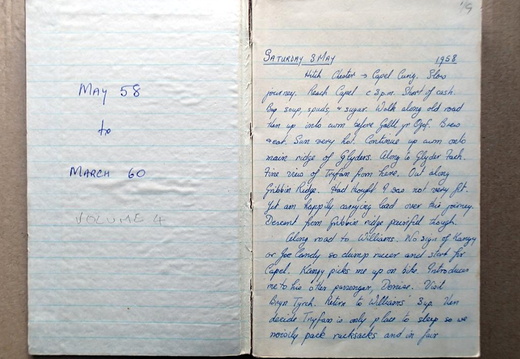 MAY 58
to
MARCH 60
VOLUME 4
SATURDAY 3 MAY 1958
Hitch Chester → Capel Curig. Slow
journey. Reach Capel c 3pm. Short of cash.
Buy soup, spuds, + sugar. Walk along old road
then up into cwm before Gallt yr Ogof. Brew
+ eat. Sun very hot. Continue up cwm onto
main ridge of Glyders. Along to Glyder Fach.
Fine view of Tryfan from here. Out along
Gribbin Ridge. Had thought I was not very fit.
Yet am happily carrying load over this journey.
Descent from Gribbin ridge painful though.
Along road to Williams. No sign of Kangy
or Joe Candy so dump and start for
Capel. Kangy picks me up on bike. Introduces
me to his other passenger, Denise. Visit
Bryn Tyrch. Return to Williams' Then
decide Tryfan is only place to sleep so we
noisily pack rucksacks and in